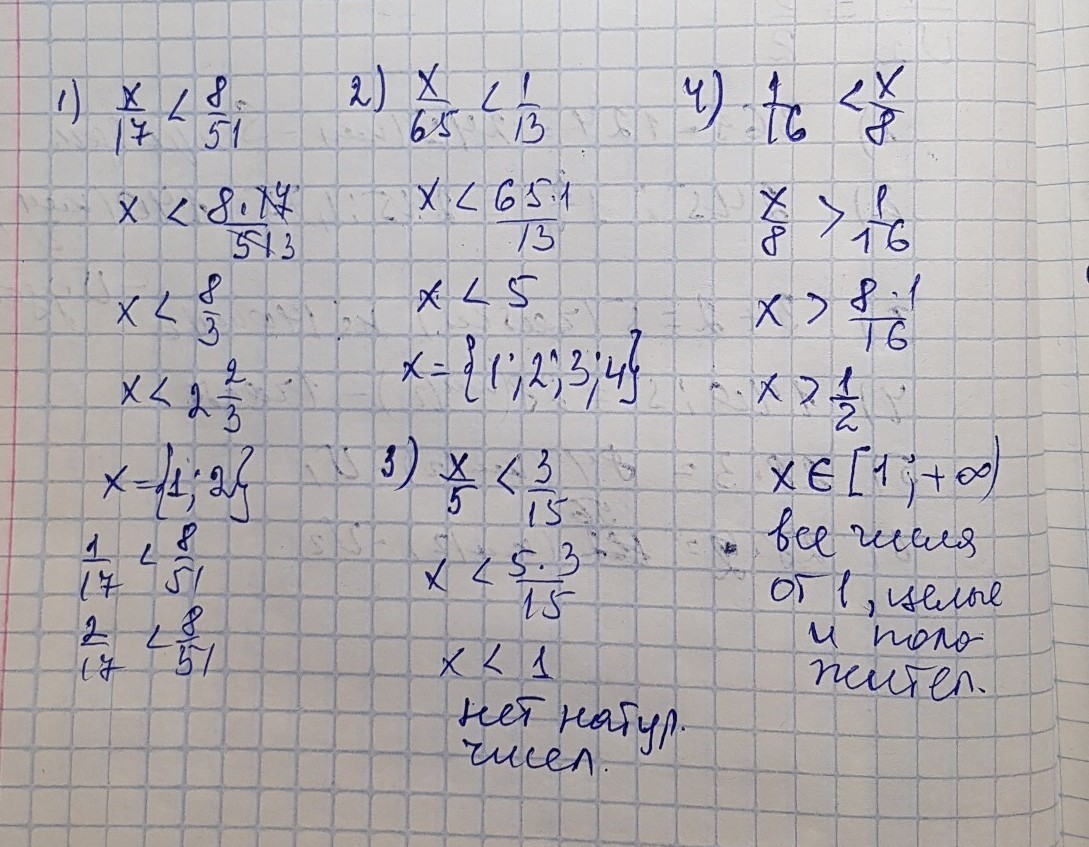 1) x/17 < 8/51
x < 8·17/51 3
x < 8/3
x < 2 2/3
x = {1; 2}
1/17 < 8/51
2/17 < 8/51
2) x/65 < 1/13
x < 65·1/13
x < 5
x = {1; 2; 3; 4}
3) x/5 < 3/15
x < 5·3/15
x < 1
нет натур.
чисел.
4) 1/16 < x/8
x/8 > 1/16
x > 8·1/16
x > 1/2
x ∈ [1; +∞)
все числа
от 1, целые
и поло-
жител.